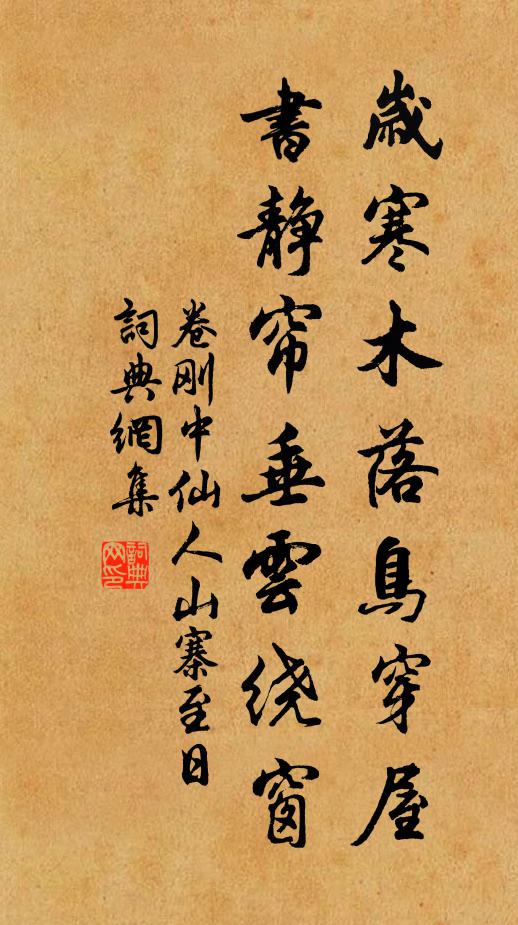 歲寒木落鳥穿屋
書靜帘垂雲绕窗
卷刚中仙人山寨至日
詞典網集
詞典网印